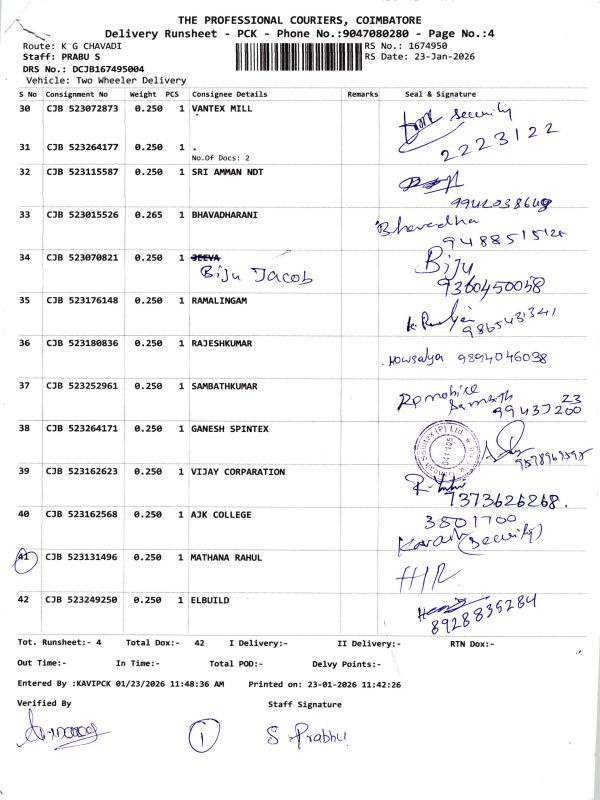 THE PROFESSIONAL COURIERS, COIMBATORE
Delivery Runsheet - PCK - Phone No.:9047080280 - Page No.:4
Route: K G CHAVADI
RS No.: 1674950
Staff: PRABU S
RS Date: 23-Jan-2026
DRS No.: DCJB167495004
Vehicle: Two Wheeler Delivery
S No Consignment No Weight PCS Consignee Details Remarks Seal & Signature
30 CJB 523072873 0.250 1 VANTEX MILL
security
2223122
31 CJB 523264177 0.250 1 .
No.Of Docs: 2
32 CJB 523115587 0.250 1 SRI AMMAN NDT
9942038649
33 CJB 523015526 0.265 1 BHAVADHARANI
Bhavadha
34 CJB 523070821 0.250 1 JEEVA
Biju Jacob
Biju
9360450058
35 CJB 523176148 0.250 1 RAMALINGAM
36 CJB 523180836 0.250 1 RAJESHKUMAR
Howsalya 9894046038
37 CJB 523252961 0.250 1 SAMBATHKUMAR
Rp mobile
38 CJB 523264171 0.250 1 GANESH SPINTEX
39 CJB 523162623 0.250 1 VIJAY CORPARATION
7373626268.
40 CJB 523162568 0.250 1 AJK COLLEGE
3501700
(security)
41 CJB 523131496 0.250 1 MATHANA RAHUL
H/R
42 CJB 523249250 0.250 1 ELBUILD
8928835284
Tot. Runsheet:- 4 Total Dox:- 42 I Delivery:- II Delivery:- RTN Dox:-
Out Time:- In Time:- Total POD:- Delvy Points:-
Entered By :KAVIPCK 01/23/2026 11:48:36 AM Printed on: 23-01-2026 11:42:26
Verified By Staff Signature
1 S Prabhu